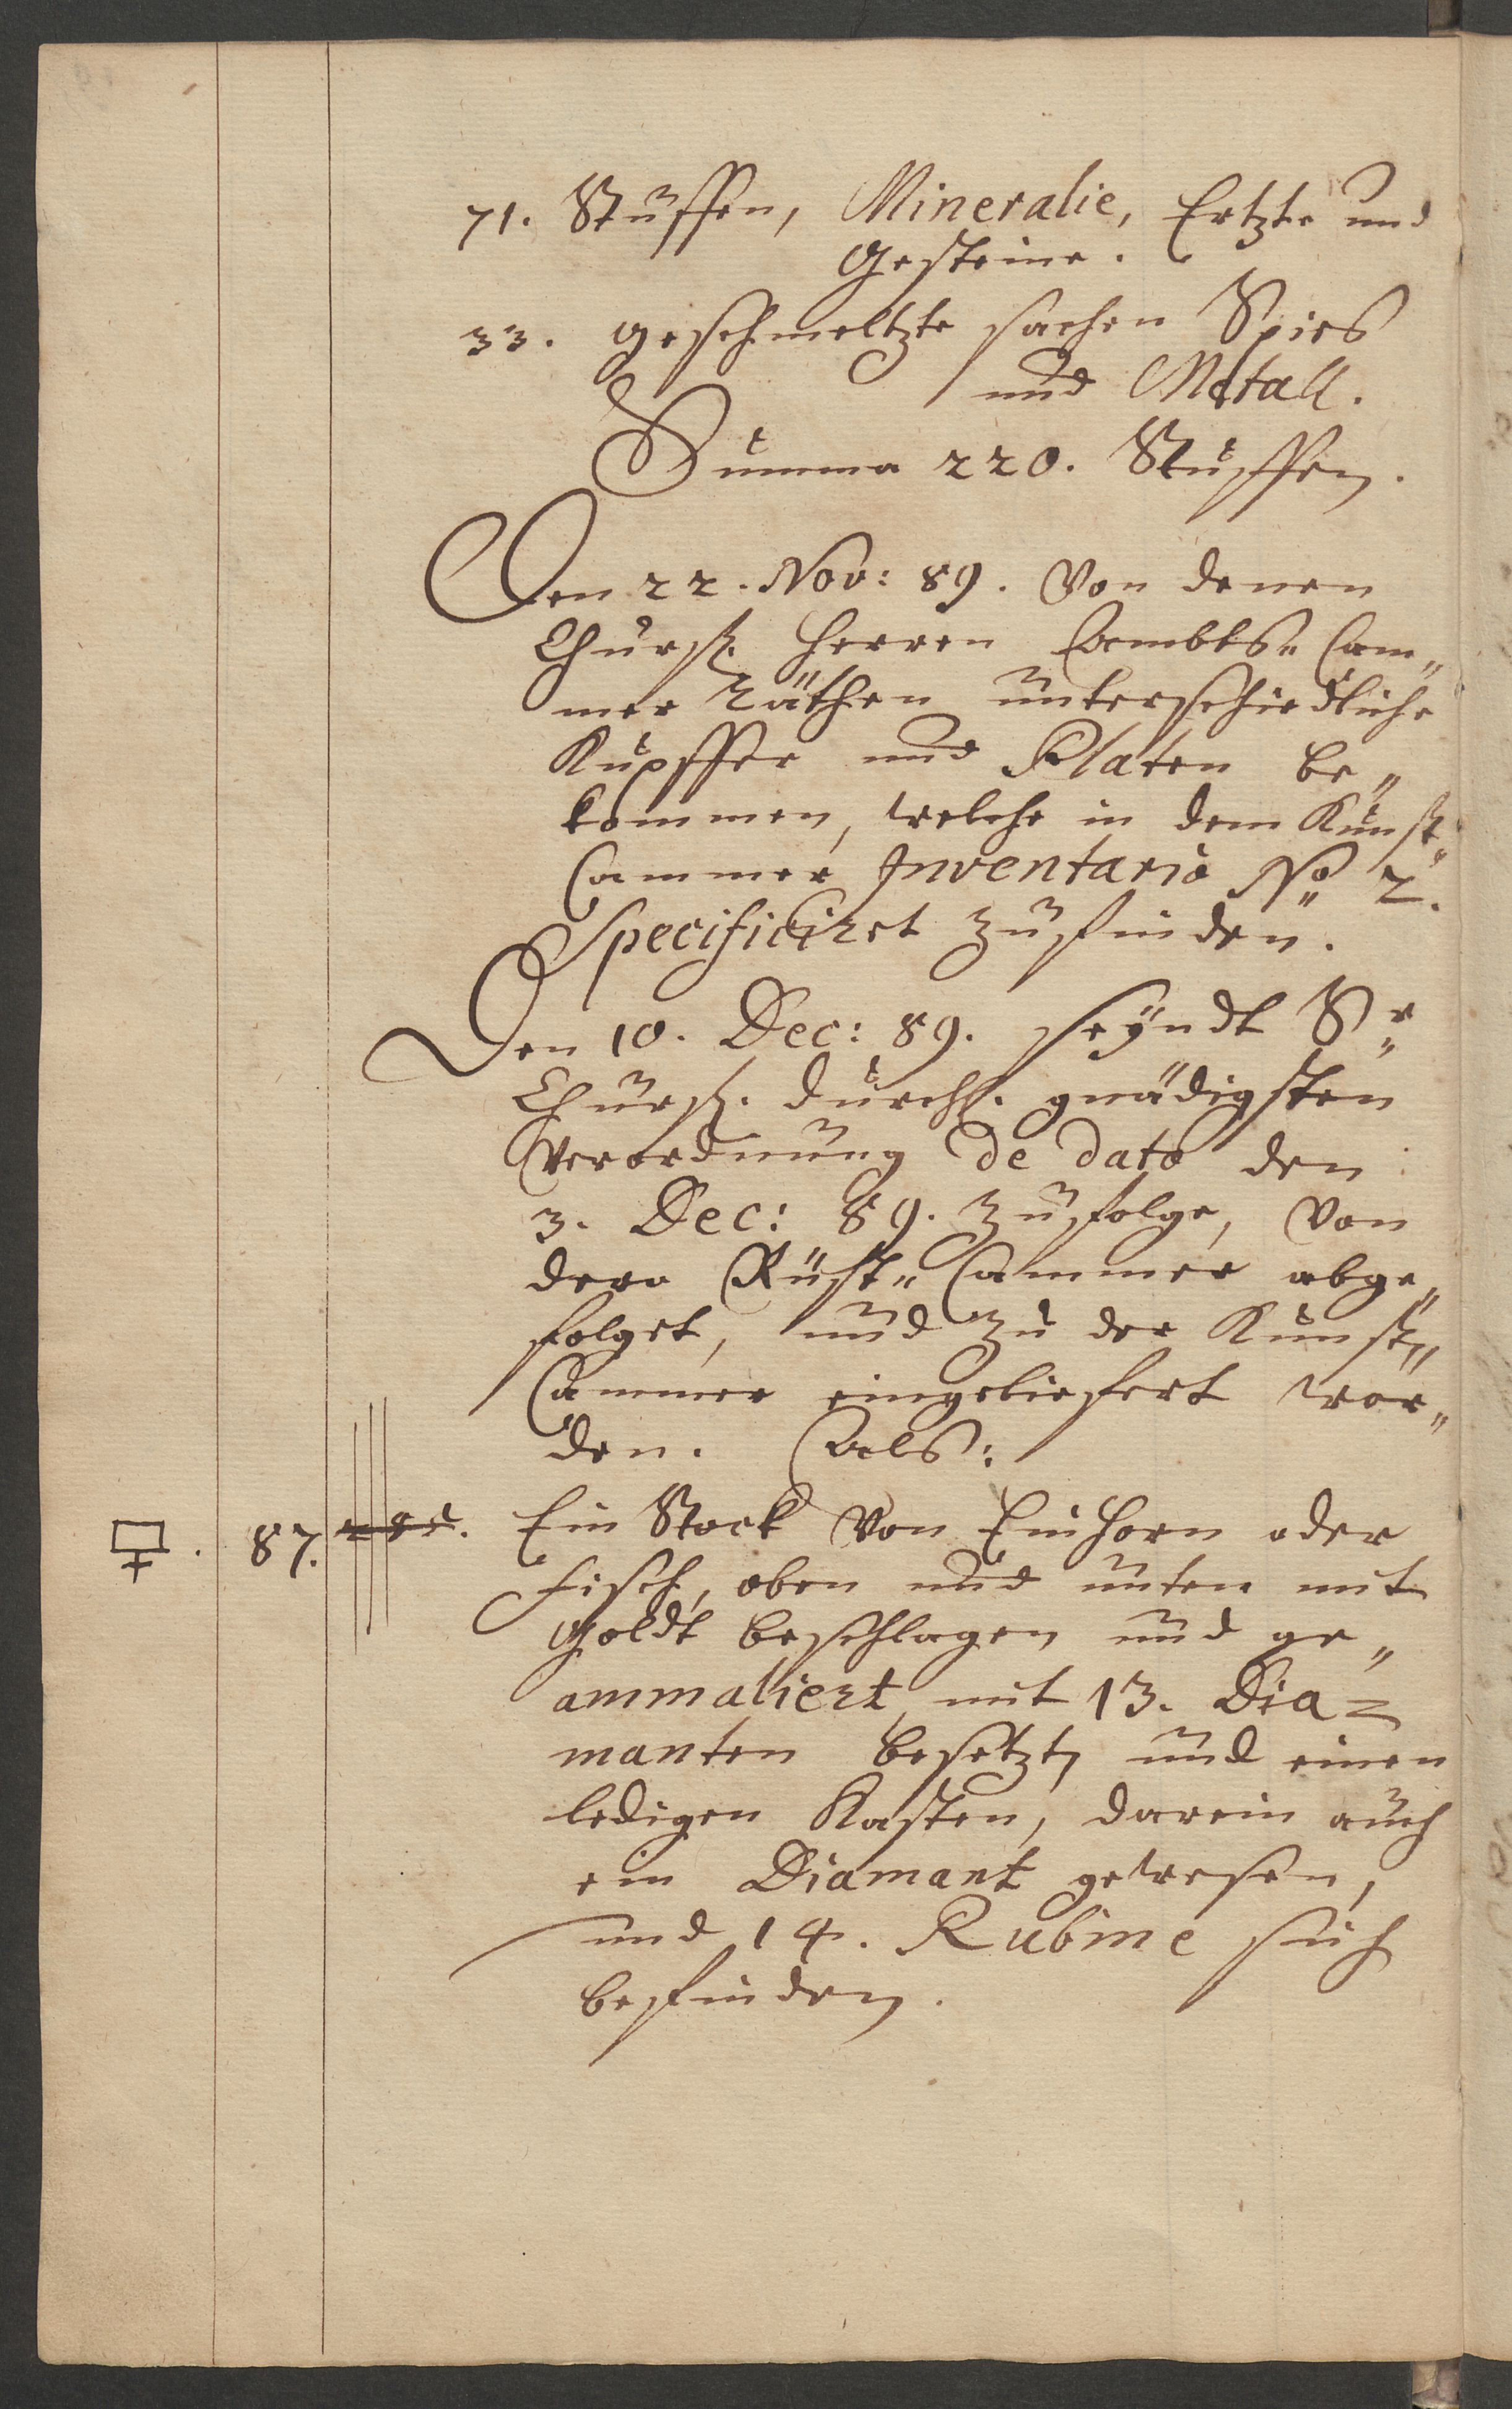 71. Stuffen, Mineralie, Ertzte und
Gesteine.
33. geschmeltzte sachen Spies
und Metall.
Summa 220. Stuffen.
Den 22. Nov: 89. Von denen
Churfl. Herren Cam„
mer Räthen unterschiedliche
Kupffer und Platen be„
kommen, welche in dem Kunst„
Cammer Inventario No 2.
Specificiret zufinden.
Den 10. Dec: 89. seyndt Sr
Churfl. Durchl. gnädigsten
Verordnung de dato den
3. Dec: 89. zufolge, Von
dero Rüst„Cammer abge„
folget, und zu der Kunst„
Cammer eingeliefert wor„
den. Als:
87. Ein Stock Von Einhorn oder
Fisch, oben und unten mit
Goldt beschlagen und ge„
ammaliert, mit 13. Dia=
manten besetzt, und einen
ledigen Kasten, darein auch
ein Diamant gewesen,
und 14. Rubine sich
befinden.